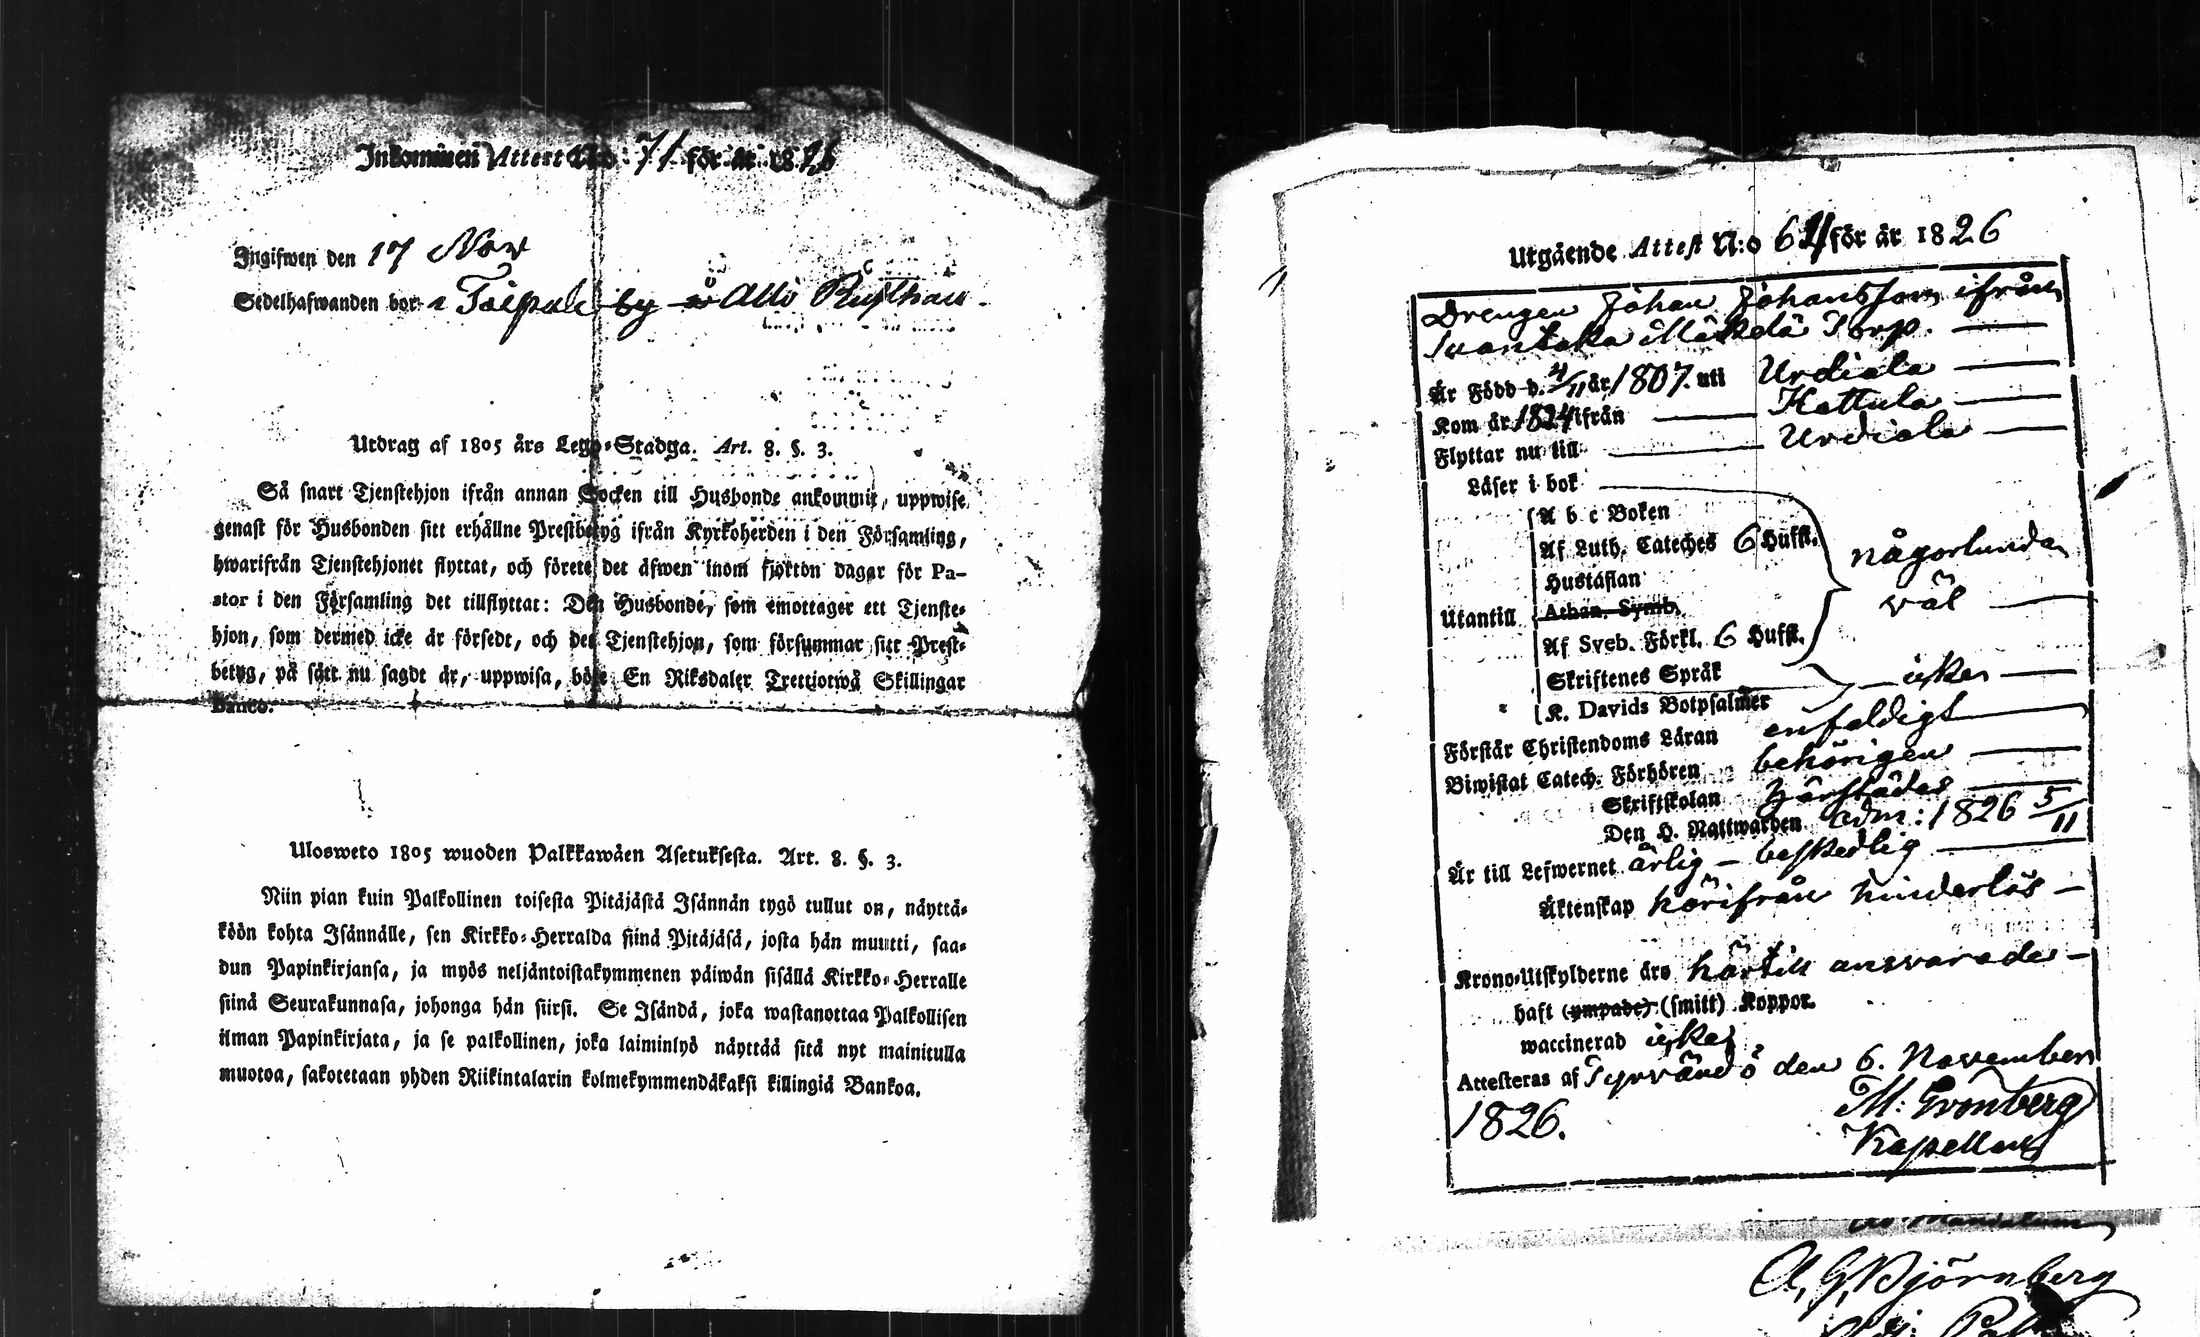 Inkommen Attest N:o 71 för år 1826
Ingifwen den 17 Nov
Sedelhafwanden bor i by å Allo Rusthåll
Utdrag af 1805 års Lego-Stadga. Art. 8. §. 3.
Så snart Tjenstehjon ifrån annan Socken till Husbonde ankommit, uppwise
genast för Husbonden sitt erhållne Prestbetyg ifrån Kyrkoherden i den Församling,
hwarifrån Tjenstehjonet flyttat, och förete det äfwen inom fjorton dagar för Pa-
stor i den Församling det tillflyttat: Den Husbonde, som emottager ett Tjenste-
hjon, som dermed icke är försedt, och det Tjenstehjon, som försummar sitt Prest-
betyg, på sätt nu sagdt är, uppwisa, böte En Riksdaler Trettiotwå Skillingar
Banco.
Ulosweto 1805 wuoden Palkkawäen Asetuksesta. Art. 8. §. 3.
Niin pian kuin Palkollinen toisesta Pitäjästä Isännän tygö tullut on, näyttä-
köön kohta Isännälle, sen Kirkko-Herralda siinä Pitäjäsä, josta hän muutti, saa-
dun Papinkirjansa, ja myös neljäntoistakymmenen päiwän sisällä Kirkko-Herralle
siinä Seurakunnasa, johonga hän siirsi. Se Isändä, joka wastanottaa Palkollisen
ilman Papinkirjata, ja se palkollinen, joka laiminlyö näyttää sitä nyt mainitulla
muotoa, sakotetaan yhden Riikintalarin kolmekymmendäkaksi killingiä Bankoa.
Utgående Attest N:o 61 för år 1826
Drengen Johan Johansson ifrån
Torp.
Är Född d. 4/11 år 1807. uti Urdiala
Kom år 1824 ifrån Hattula
Flyttar nu till Urdiala
Läser i bok
A b c Boken
Af Luth. Cateches 6 Hufst.
någorlunda
Hustaflan
väl
Utantill Athan. Symb.
Af Sveb. Förkl. 6 Hufst.
Skriftenes Språk icke
K. Davids Botpsalmer
Förstår Christendoms Läran enfaldigt
Biwistat Catech. Förhören behörigen
Skriftskolan härstädes
Den H. Nattwarden adm: 1826 5/11
Är till Lefwernet ärlig - beskedlig
Äktenskap härifrån hinderlös -
Krono-Utskylderne års härtill ansvarade -
haft (ympade) (smitt) Koppor.
waccinerad icke
Attesteras af Tyrvändö den 6. November
1826.
M: Grönberg
Kapellan
A. G. Björnberg